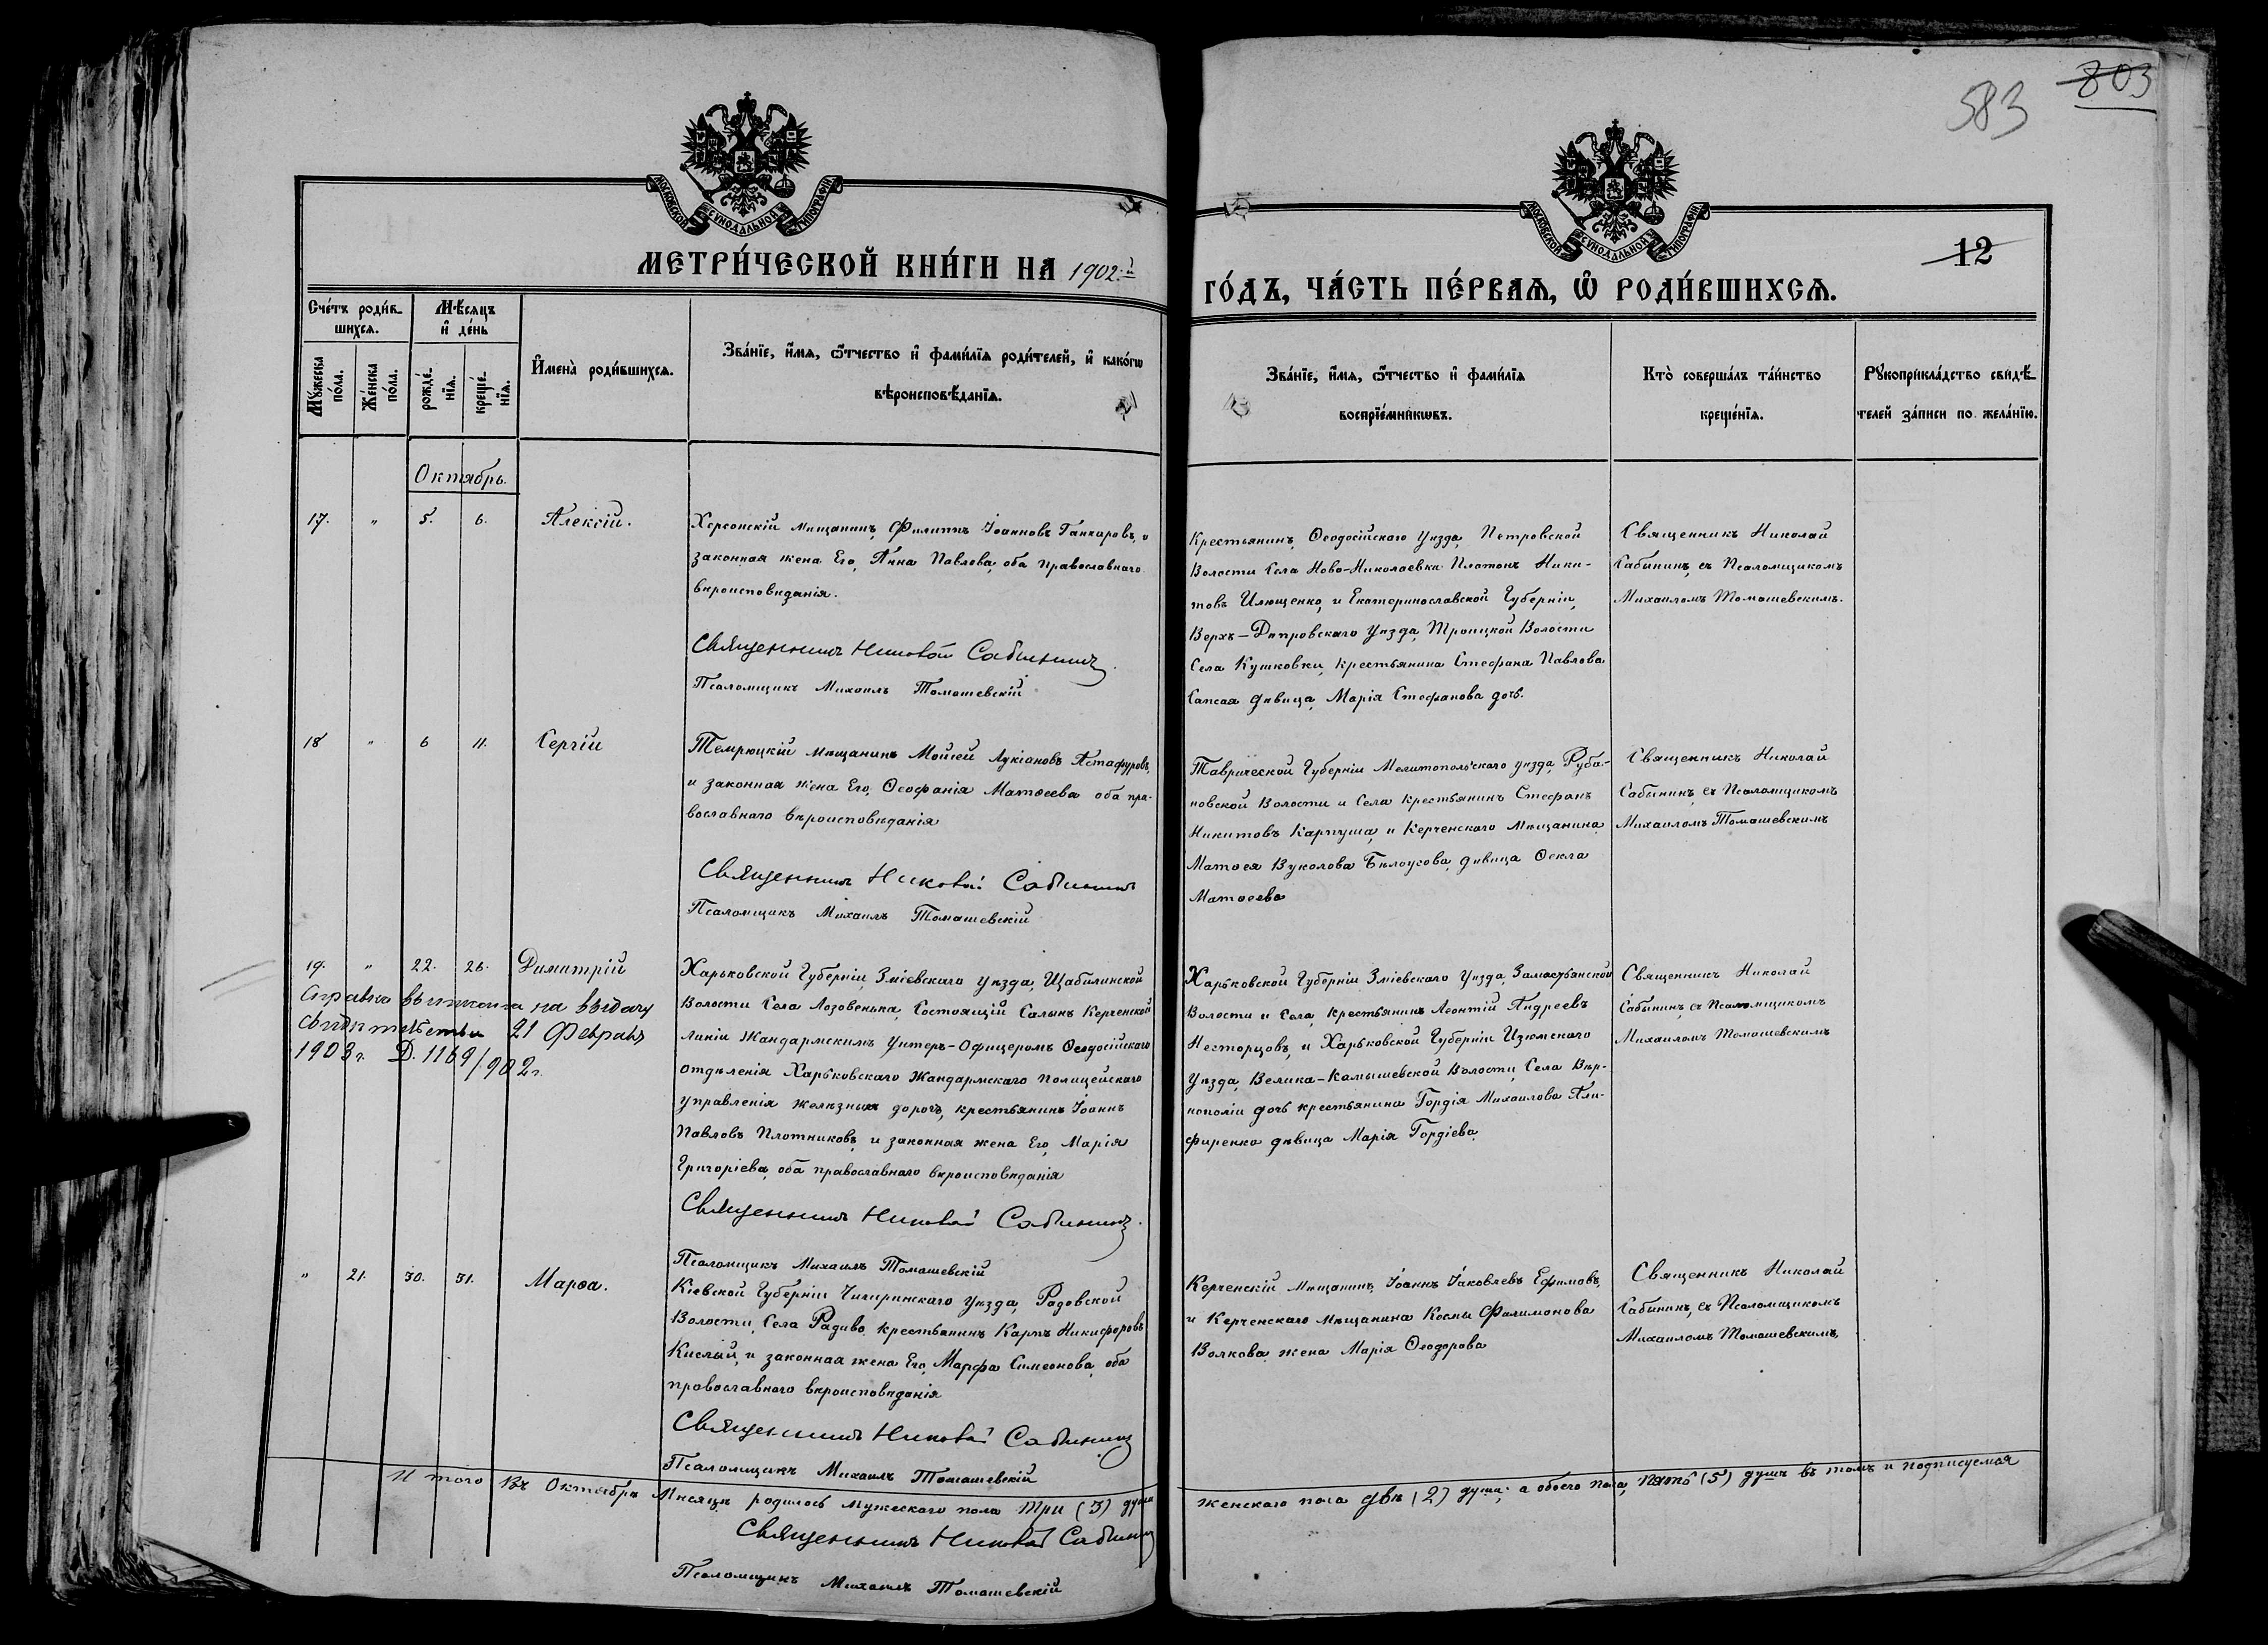 803
583
МОСКОВСКОЙ СУНОДАЛЬНОЙ ТИПОГРАФІИ
МОСКОВСКОЙ СУНОДАЛЬНОЙ ТИПОГРАФІИ
12
МЕТРИ́ЧЕСКОЙ КНИ́ГИ НА 1902.й
ГО́ДЪ, ЧА́СТЬ ПЕ́РВАѦ, Ѡ РОДИ́ВШИХСѦ.
Сче́тъ роди́в-
шихсѧ.
Мꙋжеска по́ла.
Же́нска по́ла.
Мѣ́сѧцъ
и҆ де́нь
рожде́-нїѧ.
креще́-нїѧ.
И҆мена̀ роди́вшихсѧ.
Зва́нїе, и҆́мѧ, ѻ҆́тчество и҆ фами́лїѧ роди́телей, и҆ како́гѡ
вѣроисповѣ́данїѧ.
Зва́нїе, и҆́мѧ, ѻ҆́тчество и҆ фами́лїѧ
воспрїе́мникѡвъ.
Кто̀ соверша́лъ та́инство
креще́нїѧ.
Рꙋкоприкла́дство свидѣ́-
телей за́писи по жела́нїю.
Октябрь.
17. " 5. 6. Алексій.
Херсонскій мѣщанинъ, Филиппъ Іоанновъ Ганжаровъ, и
законная жена Его, Анна Павлова, оба православнаго
вѣроисповѣданія.
Священникъ Николай Сабынинъ.
Псаломщикъ Михаилъ Томашевскій
Крестьянинъ, Ѳеодосійскаго Уѣзда, Петровской
Волости Села Ново-Николаевки Платонъ Ники-
товъ Илющенко, и Екатеринославской Губерніи,
Верхъ-Днѣпровскаго Уѣзда, Троицкой Волости
Села Кушковки, крестьянина Стефана Павлова
Сапсая дѣвица, Марія Стефанова дочь.
Священникъ Николай
Сабынинъ, съ Псаломщикомъ
Михаиломъ Томашевскимъ.
18 " 6 11. Сергій
Темрюцкій мѣщанинъ Моисей Лукіановъ Астафуровъ,
и законная жена Его, Ѳеофанія Матѳеева оба пра-
вославнаго вѣроисповѣданія
Священникъ Николай Сабынинъ
Псаломщикъ Михаилъ Томашевскій
Таврической Губерніи Мелитопольскаго уѣзда, Руба-
новской Волости и Села крестьянинъ Стефанъ
Никитовъ Карпуша, и Керченскаго Мѣщанина
Матѳея Вуколова Бѣлоусова, дѣвица Ѳекла
Матѳеева
Священникъ Николай
Сабынинъ, съ Псаломщикомъ
Михаиломъ Томашевскимъ
19. " 22. 26. Димитрій
Справка на выдачу
свидѣтельства 21 Февраля
1903 г. Д. 1169/902 г.
Харьковской Губерніи Зміевскаго уѣзда, Щабилинской
Волости Села Лозовенька, Состоящій Салынъ Керченской
линіи Жандармскимъ Унтеръ-Офицеромъ Ѳеодосійскаго
отдѣленія Харьковскаго Жандармскаго Полицейскаго
управленія желѣзныхъ дорогъ, крестьянинъ Іоаннъ
Павловъ Плотниковъ, и законная жена Его, Марія
Григоріева, оба православнаго вѣроисповѣданія
Священникъ Николай Сабынинъ.
Псаломщикъ Михаилъ Томашевскій
Харьковской Губерніи Зміевскаго Уѣзда,
Волости и Села, крестьянинъ Леонтій Андреевъ
Несторцовъ, и Харьковской Губерніи Изюмскаго
Уѣзда, Велика-Камышевской Волости, Села Вѣр-
нополіи дочь крестьянина Гордія Михаилова Али-
фиренко дѣвица Марія Гордіева
Священникъ Николай
Сабынинъ, съ Псаломщикомъ
Михаиломъ Томашевскимъ
" 21. 30. 31. Марѳа.
Кіевской Губерніи Чигиринскаго Уѣзда, Радовской
Волости, Села Радиво, крестьянинъ Карпъ Никифоровъ
Кислый, и законная жена Его, Марфа Симеонова, оба
православнаго вѣроисповѣданія
Священникъ Николай Сабынинъ
Псаломщикъ Михаилъ Томашевскій
Керченскій Мѣщанинъ, Іоаннъ Іаковлевъ Ефимовъ,
и Керченскаго Мѣщанина Космы Филимонова
Волкова жена Марія Ѳеодорова
Священникъ Николай
Сабынинъ, съ Псаломщикомъ
Михаиломъ Томашевскимъ
Итого въ Октябрѣ Мѣсяцѣ родилось мужескаго пола три (3) души
женскаго пола двѣ (2) души; а обоего пола, пять (5) душъ въ томъ и подписуемся
Священникъ Николай Сабынинъ
Псаломщикъ Михаилъ Томашевскій